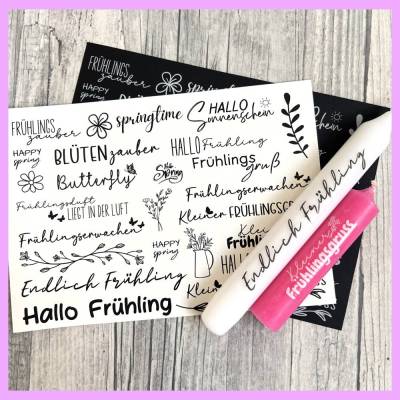 FRÜHLINGS
zauber
springtime
HALLO
Sonnenschein
HAPPY
spring
BLÜTENzauber
HALLO Frühling
Frühlings
gruß
Butterfly
Hello
Spring
Frühlingsluft
LIEGT IN DER LUFT
Kleiner FRÜHLINGSGR
Frühlingserwachen
HAPPY
spring
Kleiner
Frühling
HALLO
Endlich Frühling
Klein
Hallo Frühling
Endlich Frühling
Kleiner
Frühlingsgruss
FRÜHLINGS
zauber
springtime
HAPPY